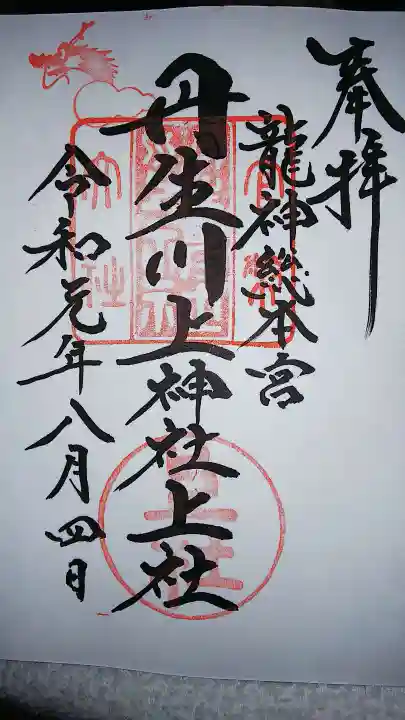 奉拝
龍神総本宮
丹生川上神社上社
令和元年八月四日
上社